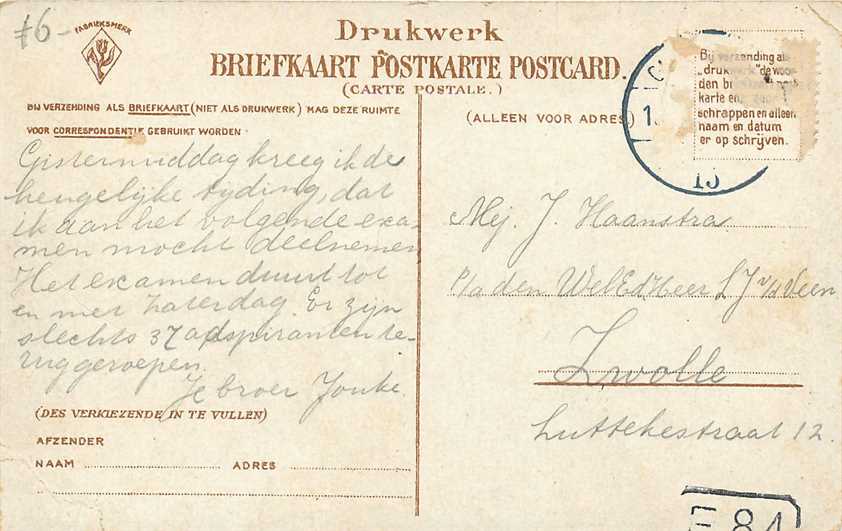 f6-
FABRIEKSMERK
Drukwerk
BRIEFKAART POSTKARTE POSTCARD.
(CARTE POSTALE.)
BIJ VERZENDING ALS BRIEFKAART (NIET ALS DRUKWERK) MAG DEZE RUIMTE
VOOR CORRESPONDENTIE GEBRUIKT WORDEN
(ALLEEN VOOR ADRES)
Bij verzending als
„drukwerk" de woor
den
karte en
schrappen en alleen
naam en datum
er op schrijven.
15
Gistermiddag kreeg ik de
heugelijke tijding, dat
ik aan het volgende exa-
men mocht deelnemen
Het examen duurt tot
en met Zaterdag. Er zijn
slechts 37 adspiranten te-
ruggeroepen.
Je broer Jouke.
Mej. J. Haanstra
p/a den WelEdHeer S J v/d Veen
Zwolle
Luttekestraat 12.
(DES VERKIEZENDE IN TE VULLEN)
AFZENDER
NAAM ADRES
E 84